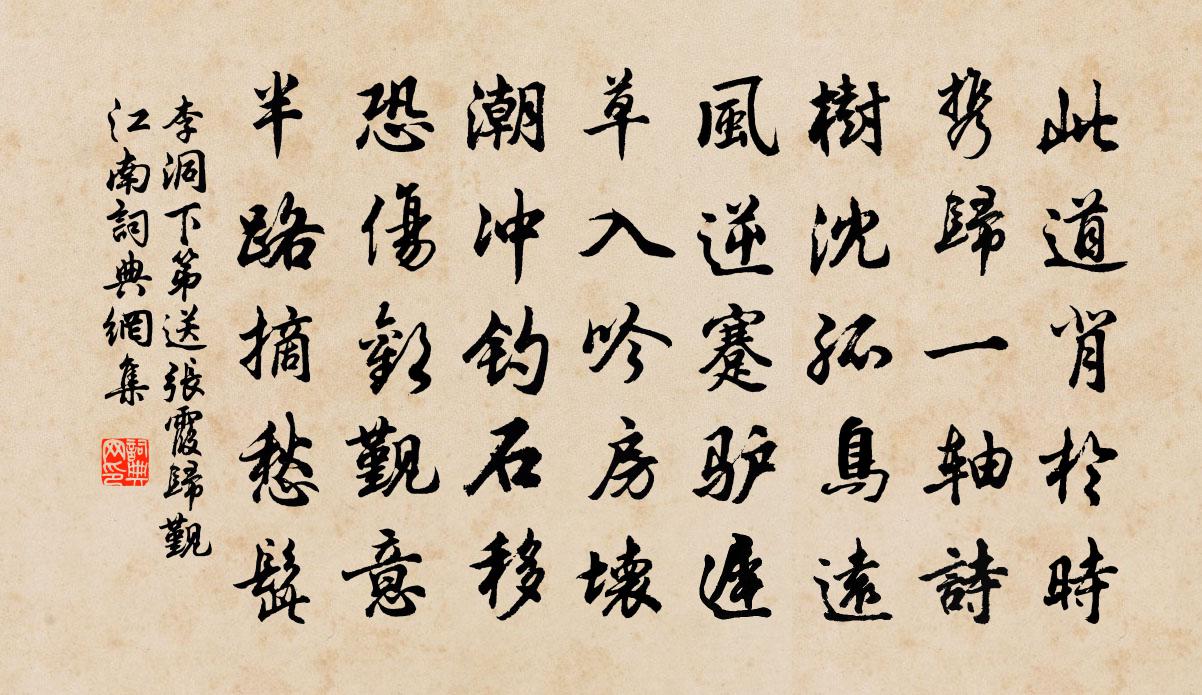 此道背於時
携歸一軸詩
樹沈孤鳥遠
風逆蹇驴遲
草入吟房壞
潮冲钓石移
恐傷歡觐意
半路摘愁髭
李洞下第送張霞歸覲
江南詞典網集
詞典
网印